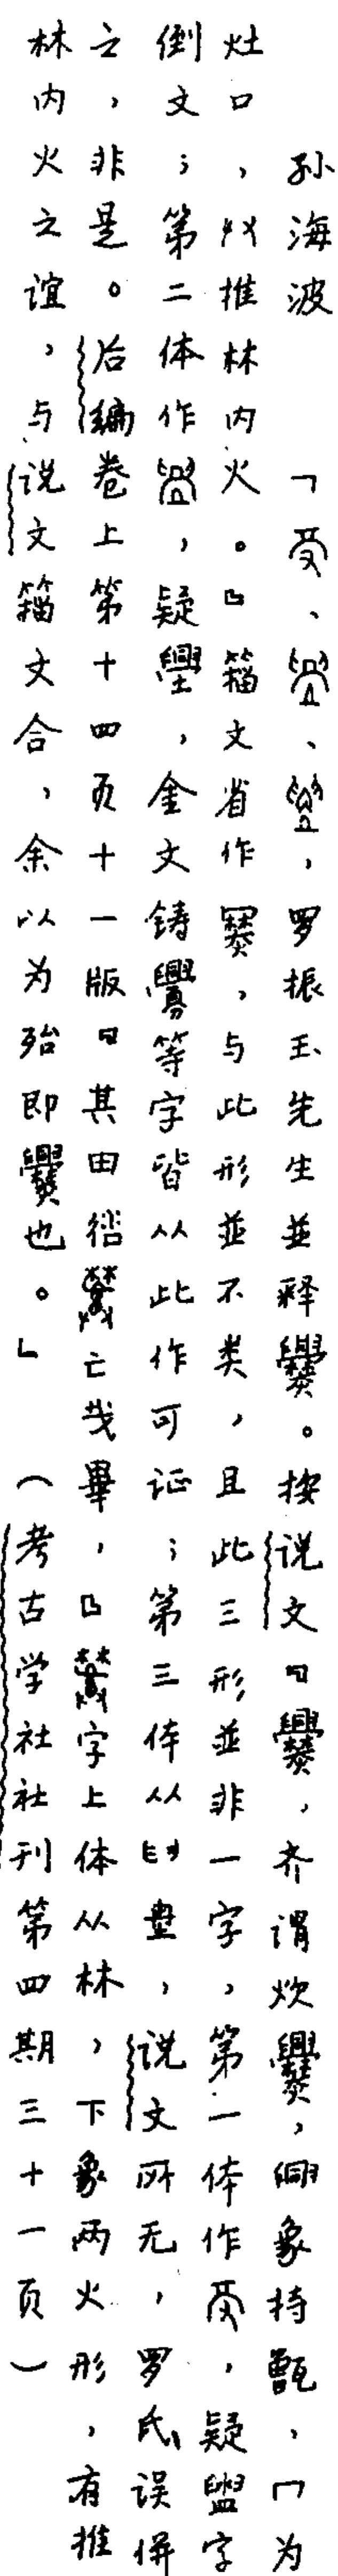 孙海波 「、、,罗振玉先生並释爨。按说文『爨,齐谓炊爨,象持甑,冂为
灶口,廾推林内火。』籀文省作,与此形並不类,且此三形並非一字,第一体作,疑盥字
倒文;第二体作,疑,金文铸等字皆从此作可证;第三体从,说文所无,罗氏误併
之,非是。后编卷上第十四页十一版『其田亡𢦔畢,』字上体从林,下象两火形,有推
林内火之谊,与说文籀文合,余以为殆即爨也。」(考古学社社刊第四期三十一页)